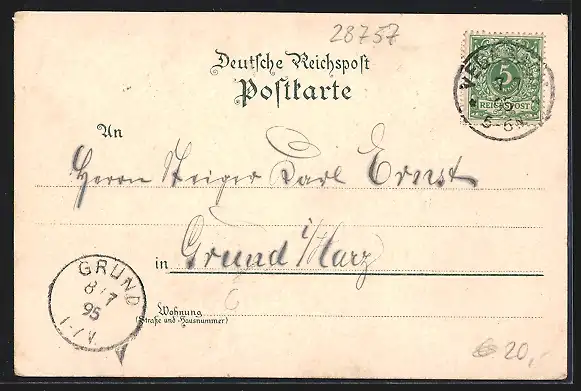 28757
Deutsche Reichspost
Postkarte
5
REICHSPOST
5-6N
An
Herrn Steiger Karl Ernst
in Grund i/Harz
GRUND
8 7
95
Wohnung
(Straße und Hausnummer)
20,-